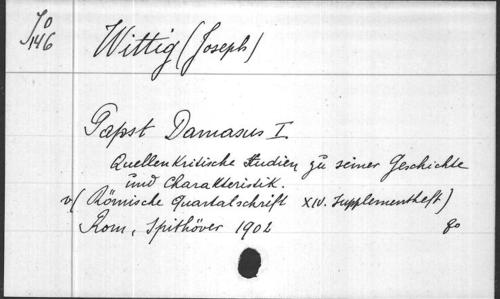 Wittig (Joseph)
146
Papst Damasus I.
Quellenkritische Studien zu seiner Geschichte
und Charakteristik.
(Römische Quartalschrift XIV. Supplementheft)
Rom, Spithöver 1902